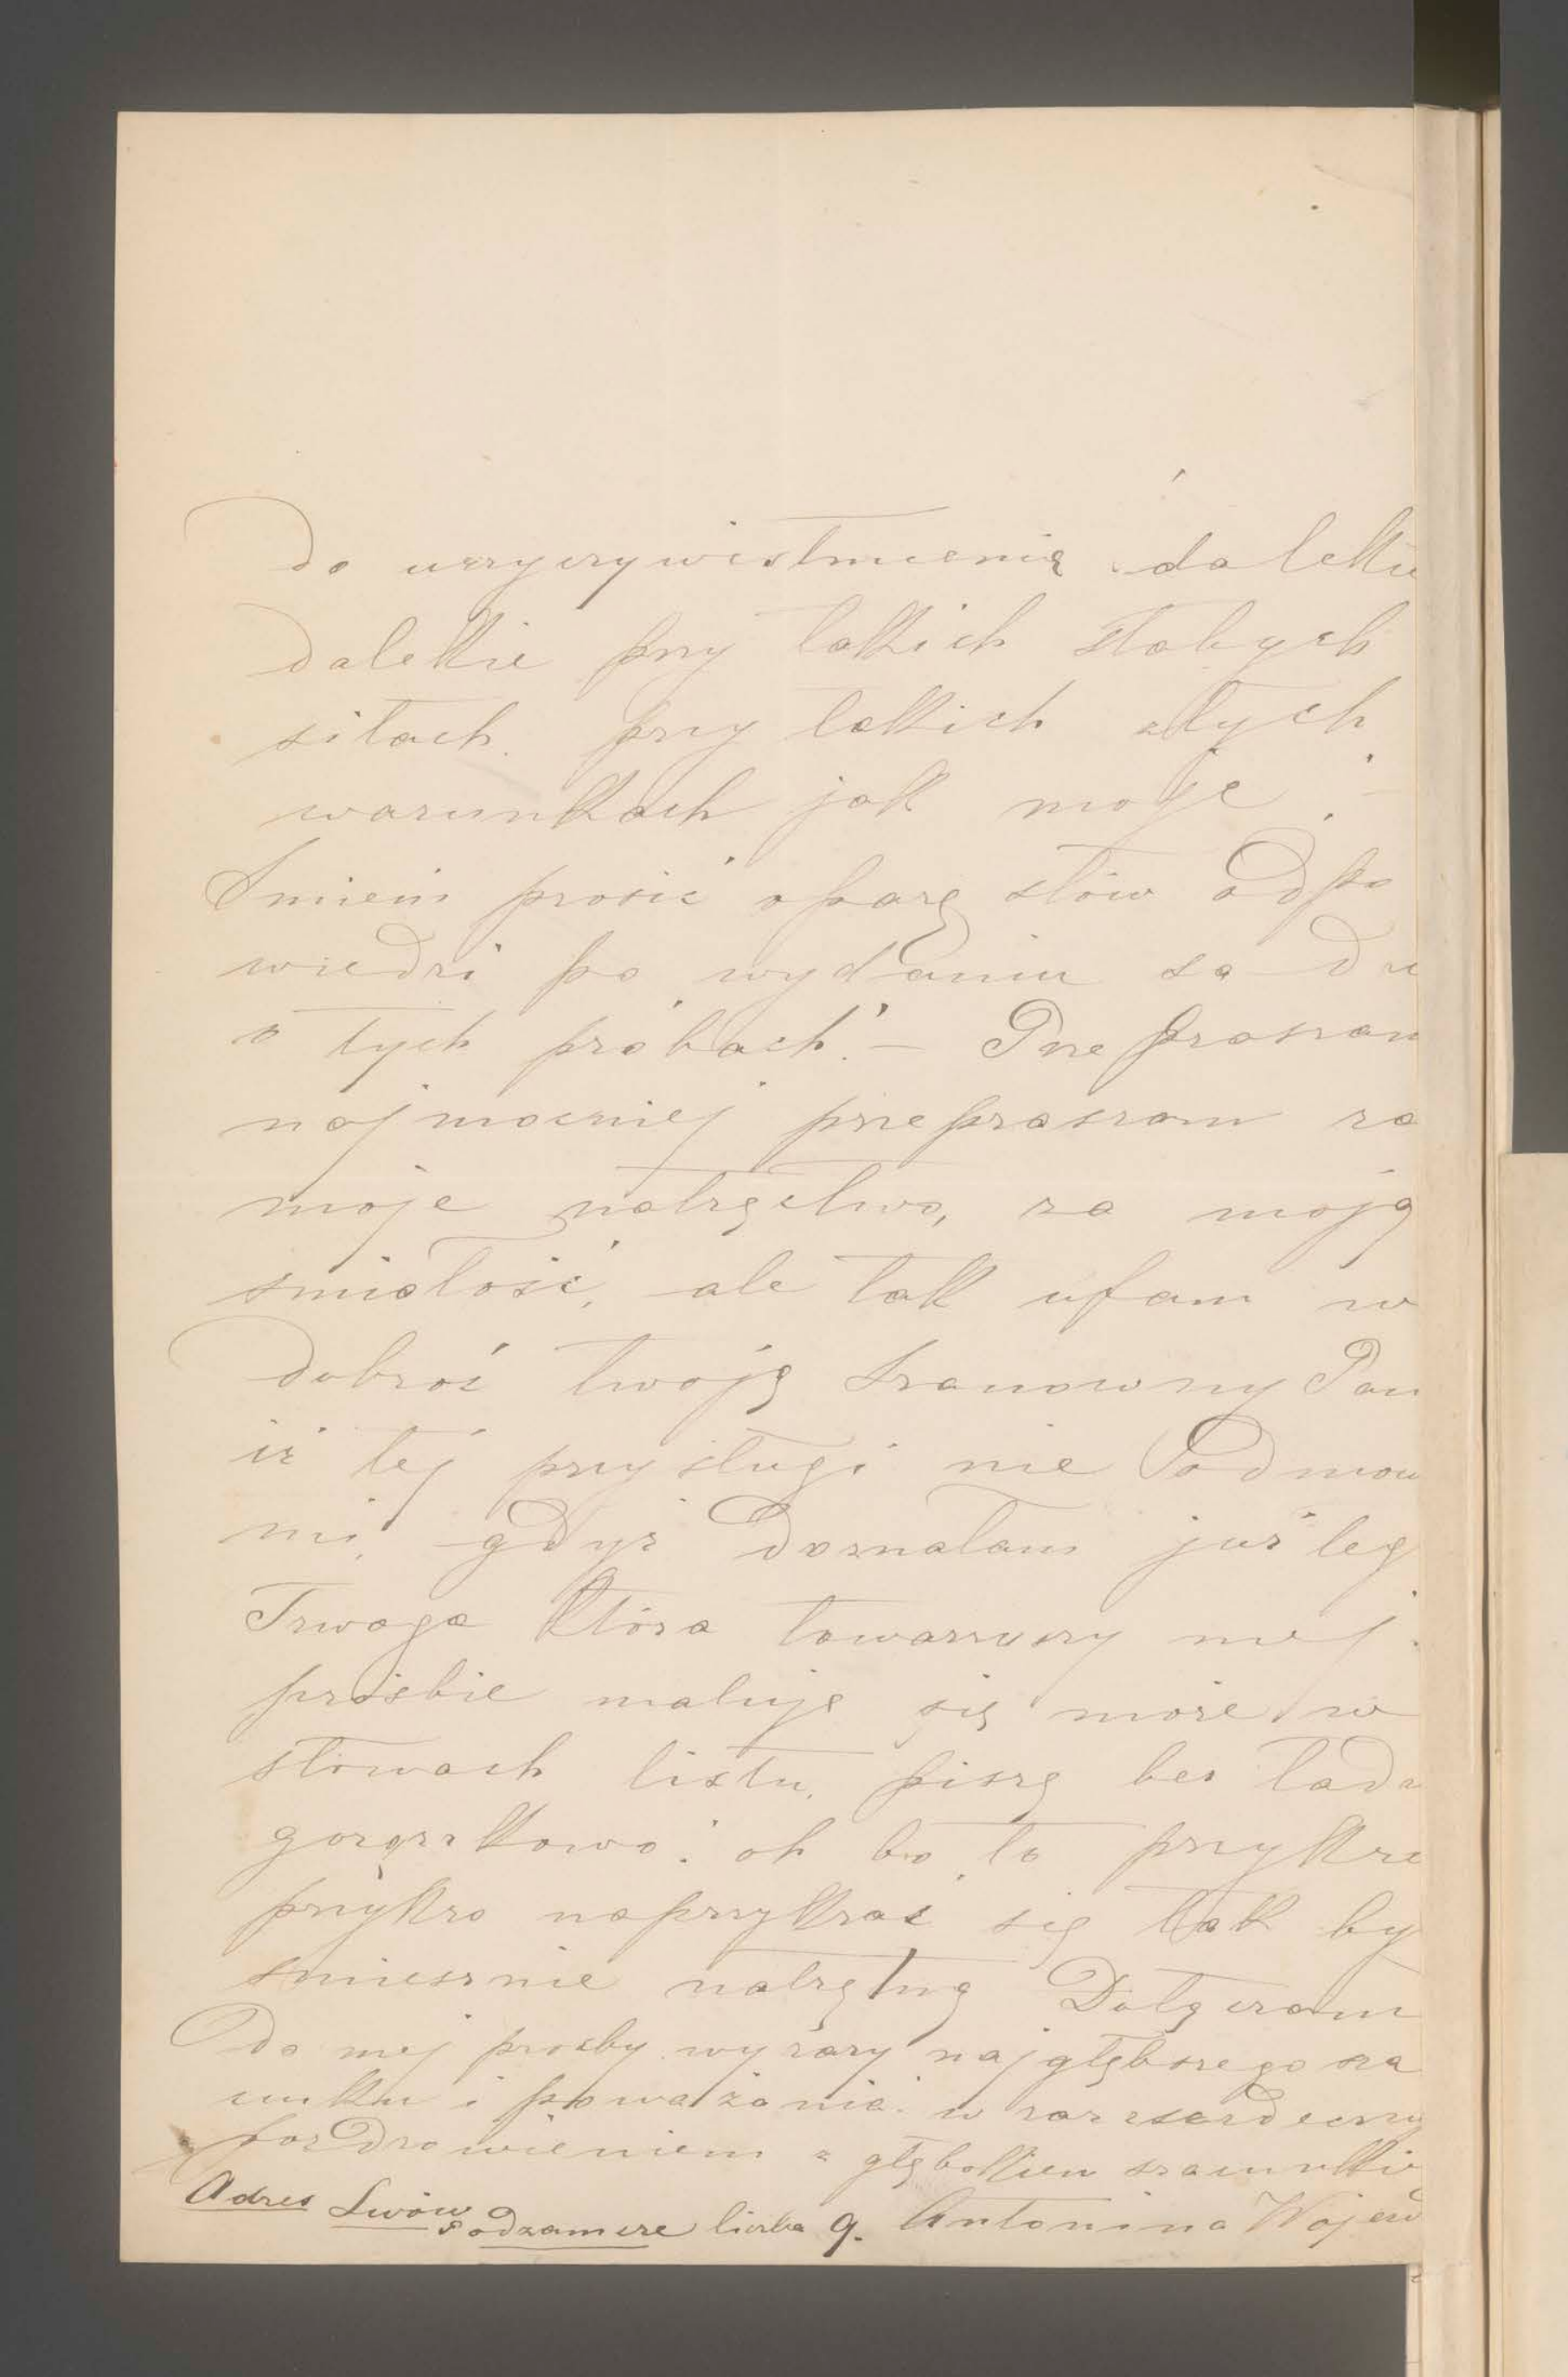 do urzeczywistnienia daleki
dalekie przy takich słabych
siłach. przy takich złych
warunkach jak moje. –
Smiem prosić o parę słów odpo
wiedzi po wydaniu są du
o tych próbach! – Prze praszam
najmocniej przepraszam za
moje natręctwo, za moją
smiałość, ale tak ufam w
dobroć twoję Szanowny Pan
iż tej przysługi nie odmow
mi, gdyż doznałam już teg
Trwoga która towarzyszy mej
prośbie maluje się może w
słowach listu, piszę bez ładu
gorączkowo: oh bo to przykre
przykro naprzykrać się tak by
smiesznie natrętną Dołączam
do mej prośby wyrazy najgłębszego sza
unku i poważania. w raz zserdeczny
pozdrowieniem z głębokiem szacunkie
Adres Lwów Antonina Wojew
Podzamcze liczba 9.